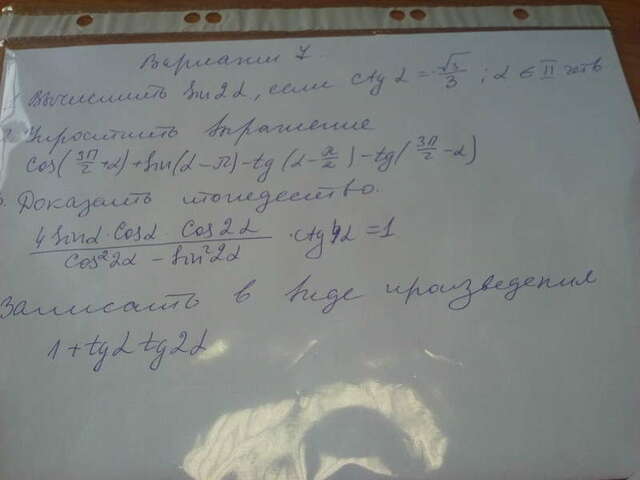 Вариант 7
Вычислить sin2α, если ctg α = -√3/3 ; α ∈ II четв
2. Упростить выражение
cos(3π/2+α)+sin(α-π)-tg(α-π/2)-tg(3π/2-α)
3. Доказать тождество.
4 sinα·cosα·cos2α/cos²2α - sin²2α ·ctg4α =1
Записать в виде произведения
1+tgα tg2α